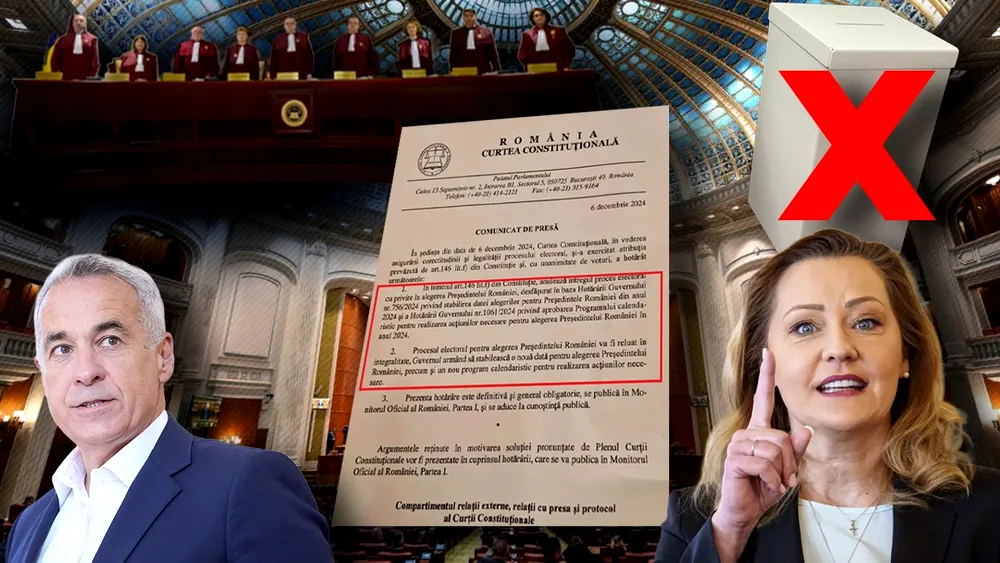 ROMÂNIA
CURTEA CONSTITUȚIONALĂ
Palatul Parlamentului
Calea 13 Septembrie nr. 2, Intrarea B1, Sectorul 5, 050725 București 40, România
Telefon: (+40-21) 414-2121 Fax: (+40-21) 315-9164
6 decembrie 2024
COMUNICAT DE PRESĂ
În ședința din data de 6 decembrie 2024, Curtea Constituțională, în vederea
asigurării corectitudinii și legalității procesului electoral, și-a exercitat atribuția
prevăzută de art.146 lit.f) din Constituție și, cu unanimitate de voturi, a hotărât
următoarele:
1. În temeiul art.146 lit.f) din Constituție, anulează întregul proces electoral
cu privire la alegerea Președintelui României, desfășurat în baza Hotărârii Guvernului
nr.756/2024 privind stabilirea datei alegerilor pentru Președintele României din anul
2024 și a Hotărârii Guvernului nr.1061/2024 privind aprobarea Programului calenda-
ristic pentru realizarea acțiunilor necesare pentru alegerea Președintelui României în
anul 2024.
2. Procesul electoral pentru alegerea Președintelui României va fi reluat în
integralitate, Guvernul urmând să stabilească o nouă dată pentru alegerea Președintelui
României, precum și un nou program calendaristic pentru realizarea acțiunilor nece-
sare.
3. Prezenta hotărâre este definitivă și general obligatorie, se publică în Mo-
nitorul Oficial al României, Partea I, și se aduce la cunoștință publică.
•
Argumentele reținute în motivarea soluției pronunțate de Plenul Curții
Constituționale vor fi prezentate în cuprinsul hotărârii, care se va publica în Monitorul
Oficial al României, Partea I.
Compartimentul relații externe, relații cu presa și protocol
al Curții Constituționale
X